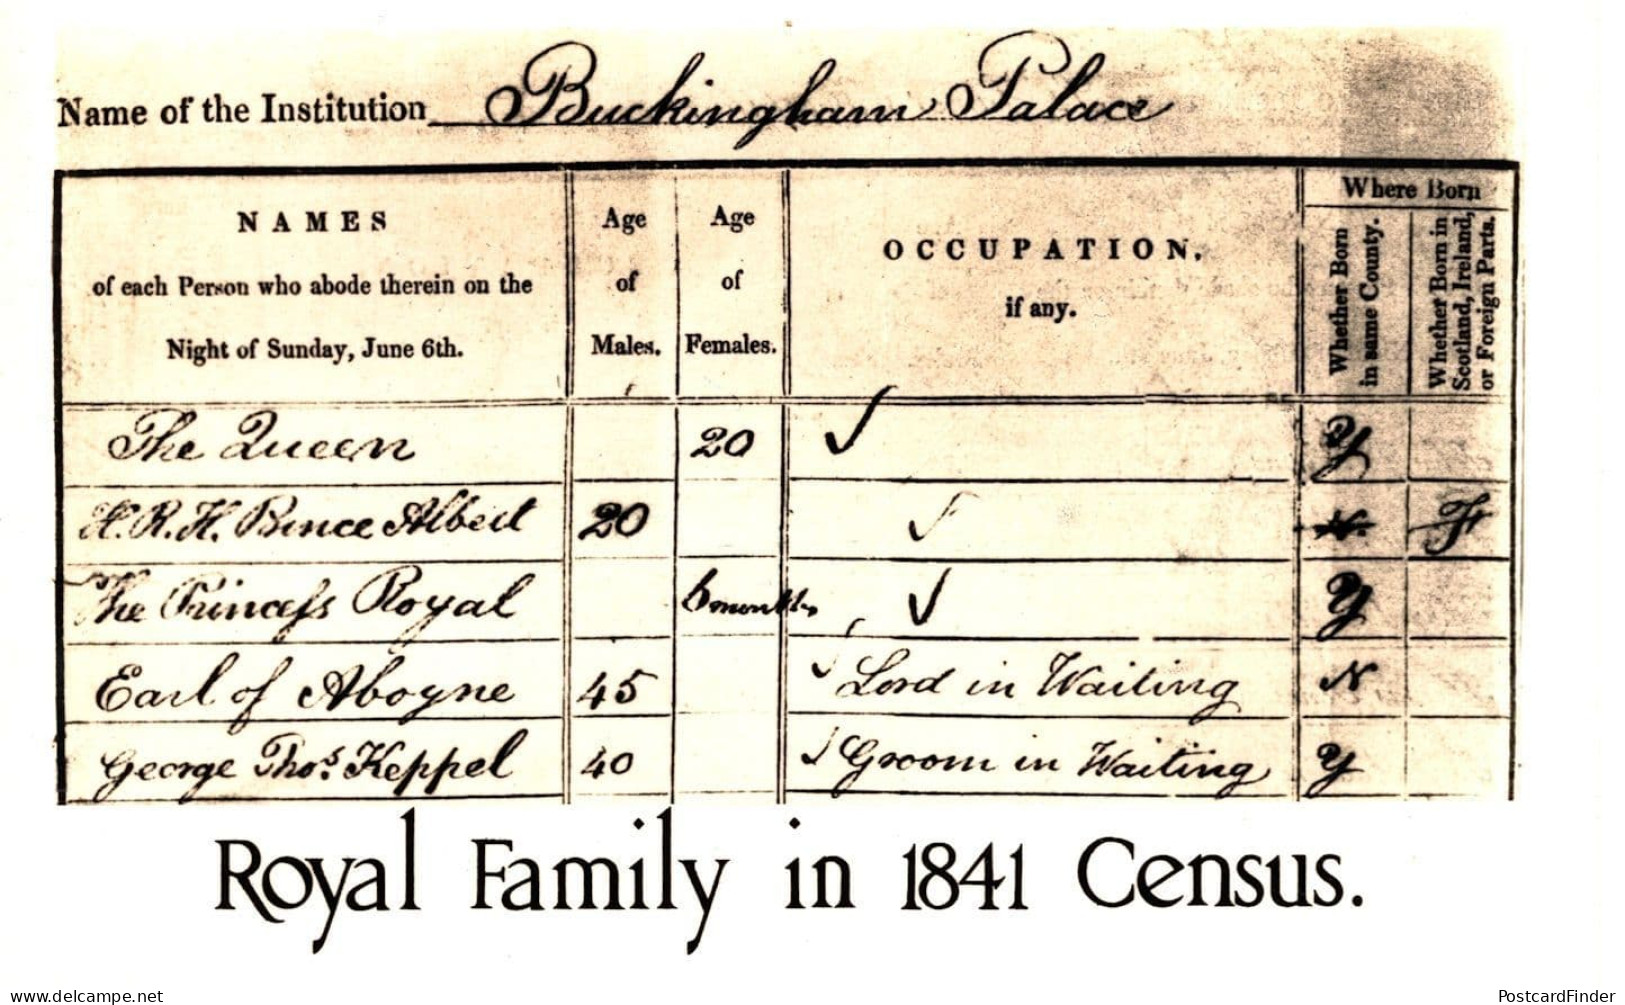 Name of the Institution Buckingham Palace
NAMES
of each Person who abode therein on the
Night of Sunday, June 6th.
Age
of
Males.
Age
of
Females.
OCCUPATION.
if any.
Where Born
Whether Born
in same County.
Whether Born in
Scotland, Ireland,
or Foreign Parts.
The Queen 20 ✓ Y
H.R.H. Prince Albert 20 ✓ N. F
The Princess Royal 6 months ✓ Y
Earl of Aboyne 45 ✓ Lord in Waiting N
George Thos. Keppel 40 ✓ Groom in Waiting Y
Royal Family in 1841 Census.
www.delcampe.net
PostcardFinder